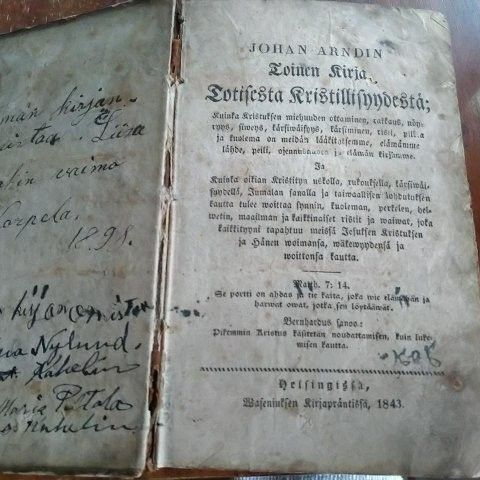 män kirjan
Liisa
waimo
Korpela.
1898.
Nylund
Maria P. Tala
JOHAN ARNDIN
Toinen Kirja
Totisesta Kristillisyydestä;
Kuinka Kristuksen miehuuden ottaminen, rakkaus, nöy-
ryys, siweys, kärsiwäisyys, kärsiminen, risti, pilkka
ja kuolema on meidän lääkitsemme, elämämme
lähde, peili, ojennusnuora ja elämän kirjamme.
Ja
Kuinka oikian Kristityn uskolla, rukouksella, kärsiwäi-
syydellä, Jumalan sanalla ja taiwaallisen lohdutuksen
kautta tulee woittaa synnin, kuoleman, perkelen, hel-
wetin, maailman ja kaikkinaiset ristit ja waiwat, joka
kaikki tyyni tapahtuu meissä Jesuksen Kristuksen
ja Hänen woimansa, wäkewyydensä ja
woittonsa kautta.
Math. 7: 14.
Se portti on ahdas ja tie kaita, joka wie elämähän ja
harwat owat, jotka sen löytäwät.
Bernhardus sanoo:
Pikemmin Kristus käsitetän noudattamisen, kuin luke-
misen kautta.
Helsingissä,
Waseniuksen Kirjapräntissä, 1843.